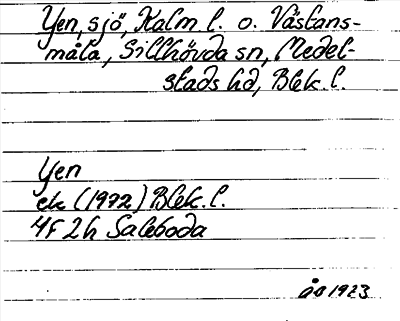 Yen, sjö, Kalm l. o. Västans-
måla, Sillhövda sn, Medel-
stads hd, Blek. l.
Yen
ek (1972) Blek. l.
4F 2h Saleboda
åo 1923